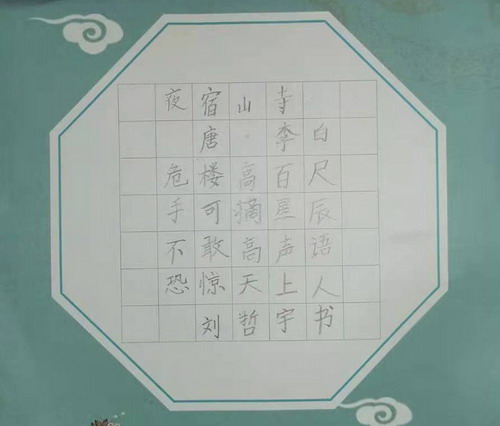 夜宿山寺
唐·李白
危楼高百尺
手可摘星辰
不敢高声语
恐惊天上人
刘哲宇书